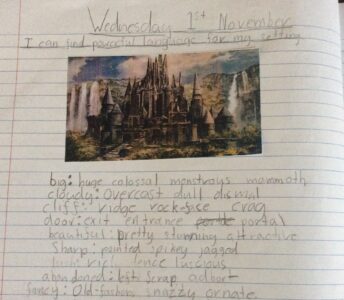 Wednesday 1st November
I can find powerful language for my setting
big: huge colossal monstrous mammoth
cloudy: Overcast dull dismal
cliff: ridge rock-face crag
door: exit entrance portal
beautiful: pretty stunning attractive
Sharp: pointed spikey jagged
lush: rich luscious
abandoned: left scrap
fancy: Old-fashion snazzy ornate